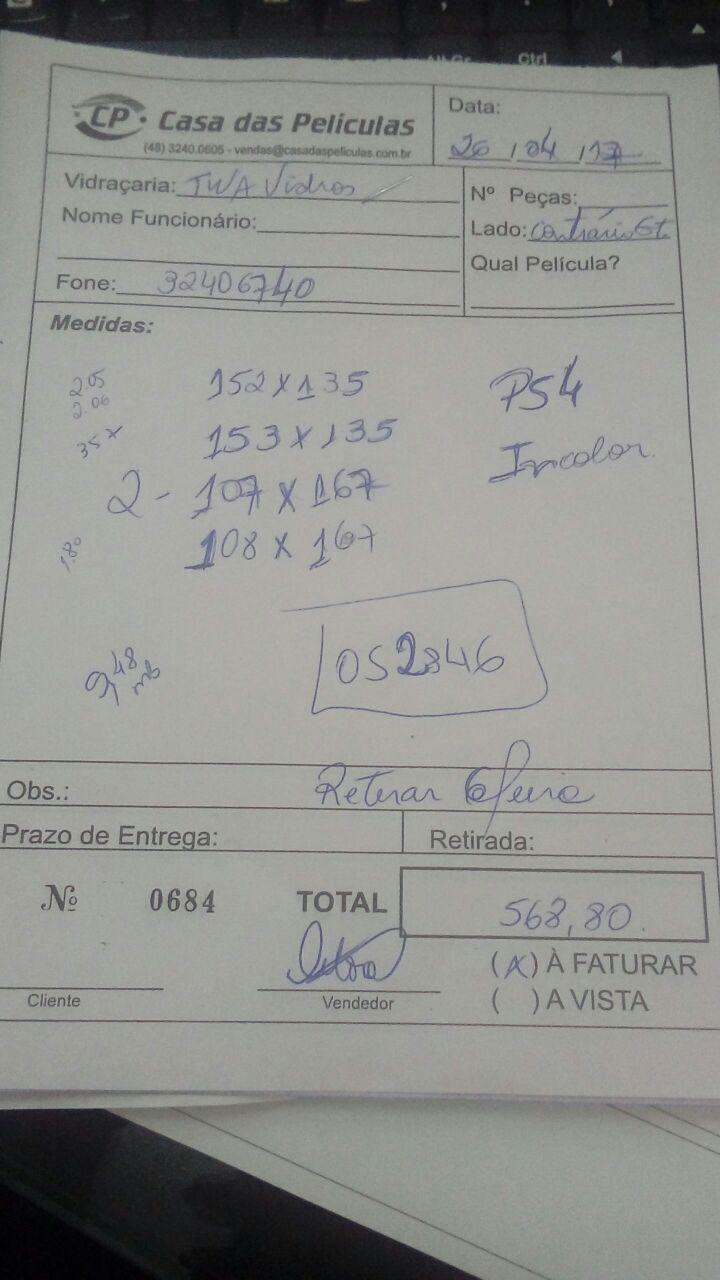 Ctrl
CP Casa das Películas
(48) 3240.0605 - vendas@casadaspeliculas.com.br
Data:
26/04/17
Vidraçaria: TWA Vidros
Nome Funcionário:
Fone: 32406740
Nº Peças:
Lado: Contrário
Qual Película?
Medidas:
2.05
2.06
35 x
152 x 135
153 x 135
2 - 107 x 167
1.80
108 x 167
PS4
Incolor
9,48
OS 2846
Obs.: Retirar 6 feira
Prazo de Entrega:
Retirada:
Nº 0684
TOTAL
568,80
(X) À FATURAR
( ) A VISTA
Cliente
Vendedor